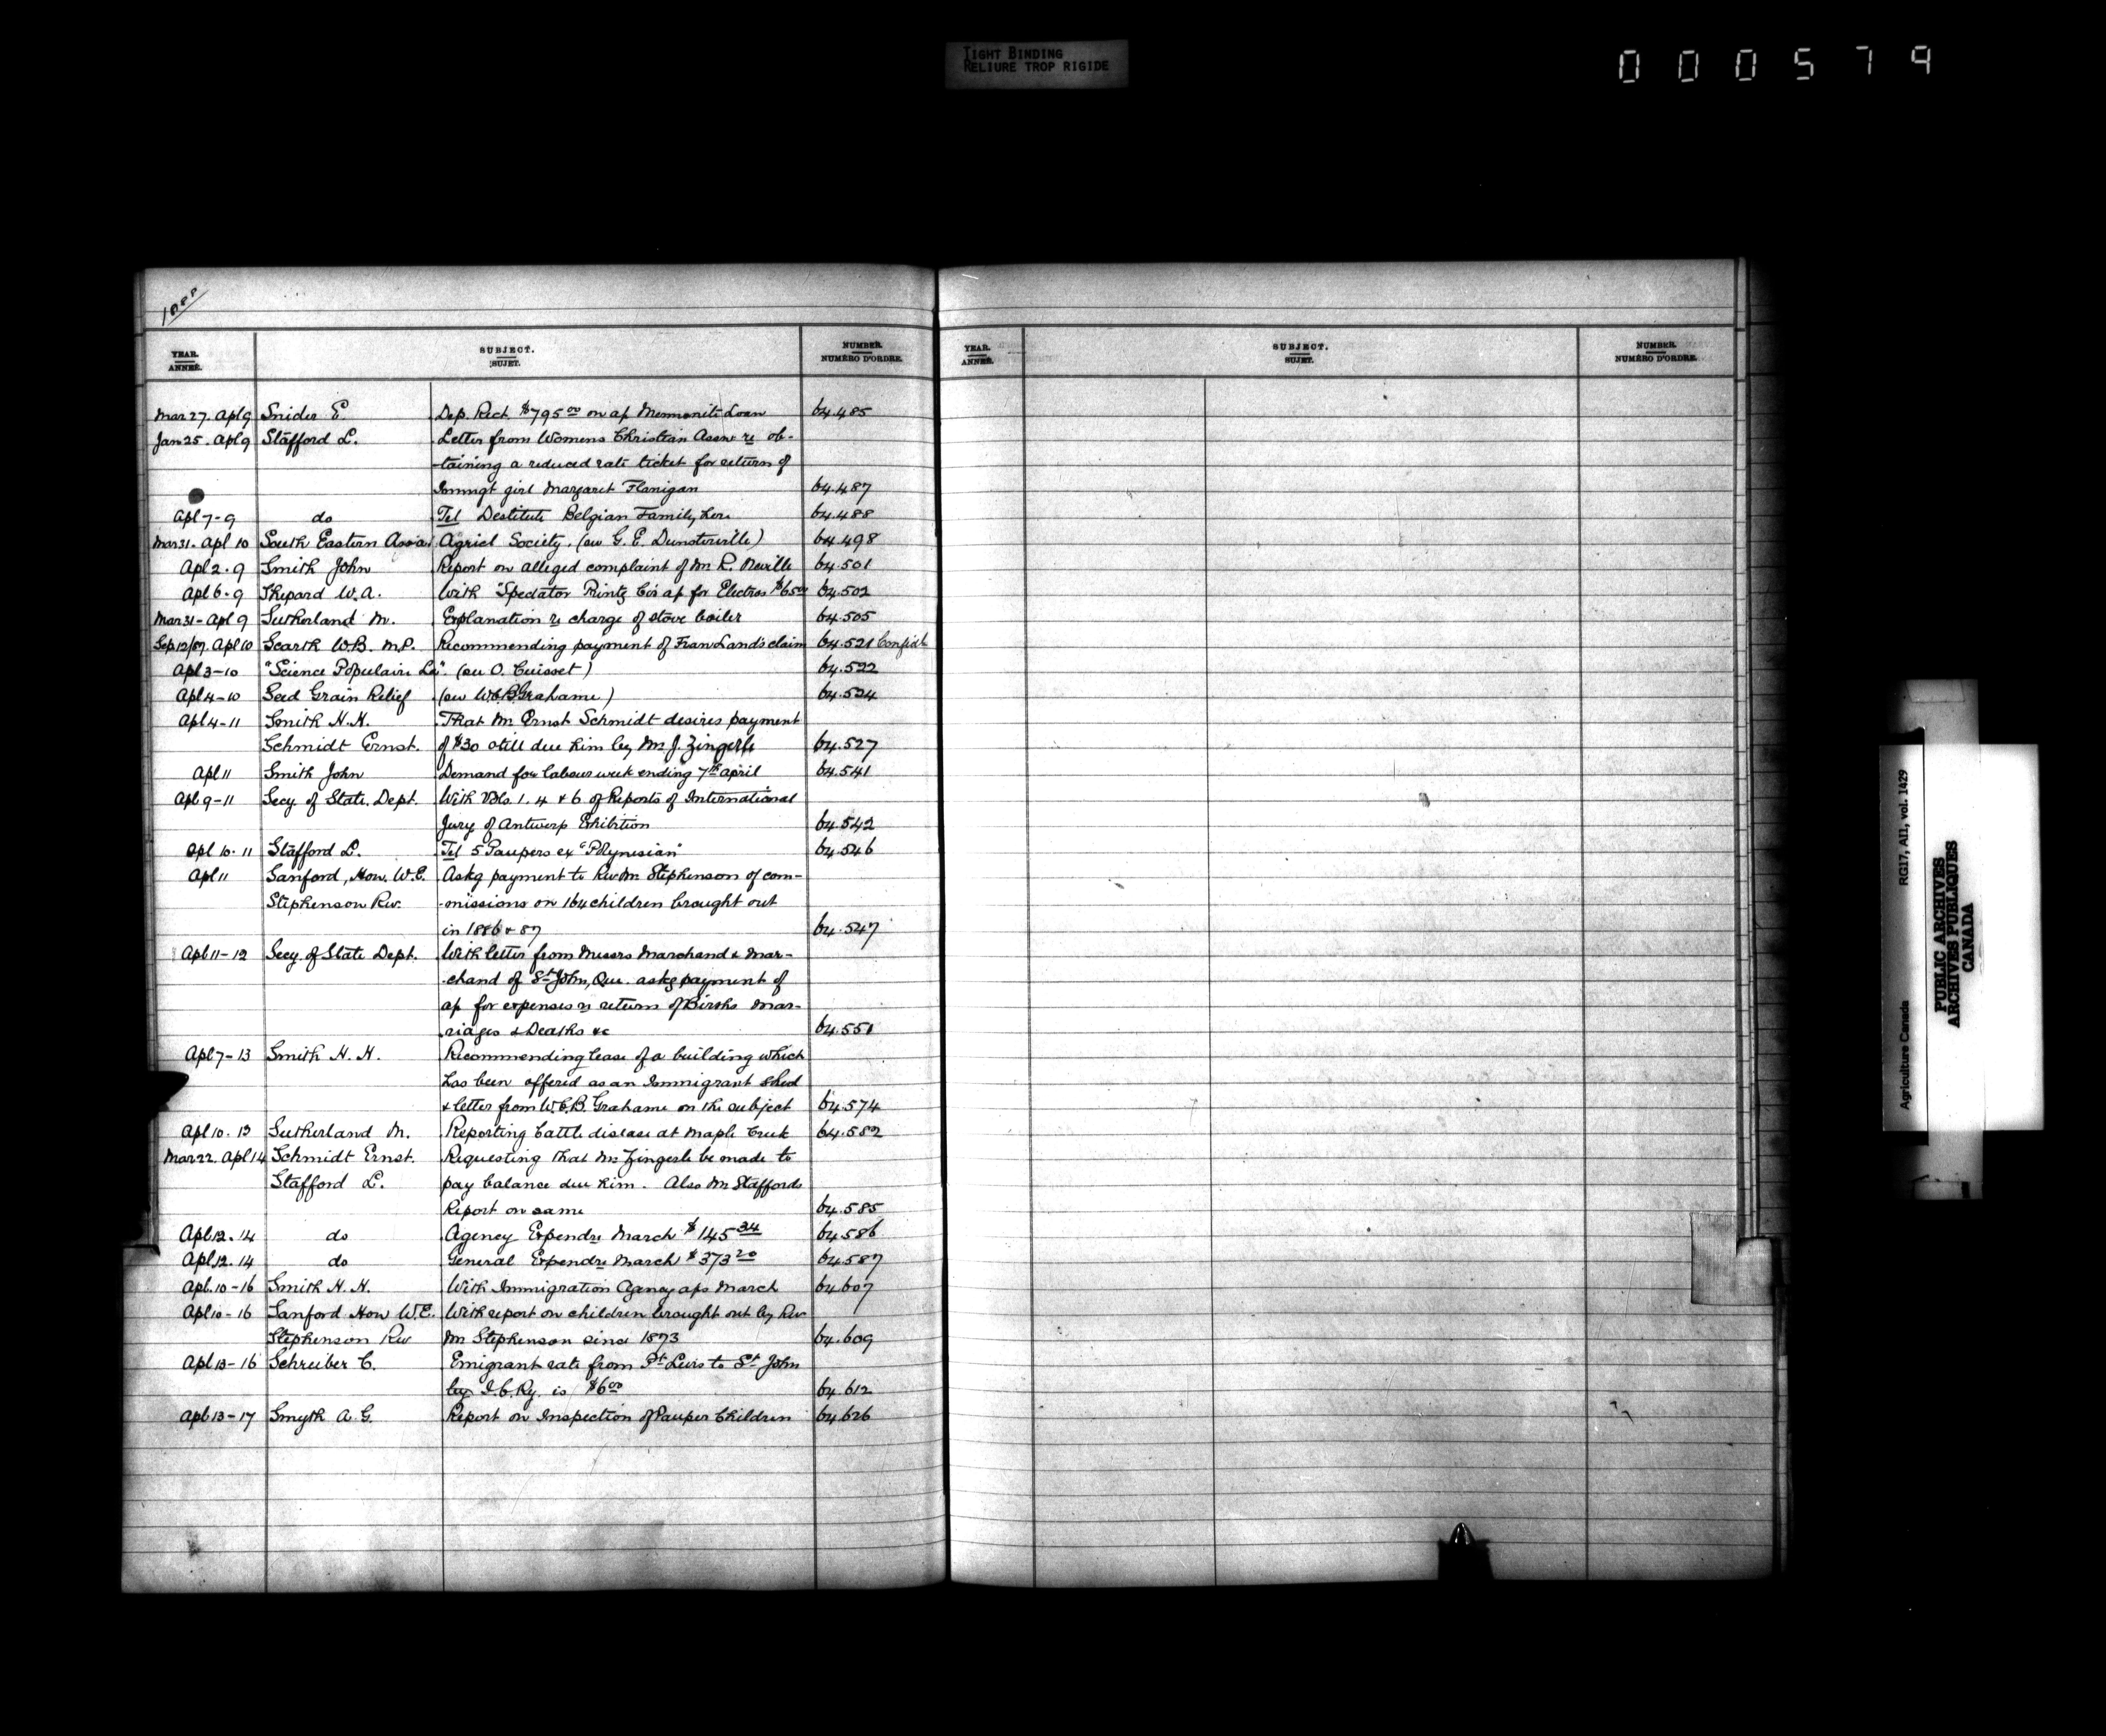 TIGHT BINDING
RELIURE TROP RIGIDE
000579
1888
YEAR. ANNÉE. SUBJECT. SUJET. NUMBER. NUMÉRO D'ORDRE.
YEAR. ANNÉE. SUBJECT. SUJET. NUMBER. NUMÉRO D'ORDRE.
Mar 27. Apl 9 Snider E. Dep. Rect $795 00 on a/c Mennonite Loan 64.485
Jan 25. Apl 9 Stafford L. Letter from Womens Christian Assn re ob-
-taining a reduced rate ticket for return of
Immigt girl Margaret Flanigan 64.487
Apl 7-9 do Tel Destitute Belgian Family here 64.488
Mar 31. Apl 10 South Eastern Assa. Agricl Society. (see G. E. Dunsterville) 64.498
Apl 2-9 Smith John Report on alleged complaint of Mr R. Neville 64.501
Apl 6-9 Shepard W. A. With "Spectator Printg Co's a/c for Electros $65 00 64.502
Mar 31-Apl 9 Sutherland M. Explanation re charge of stove boiler 64.505
Sep 12/87. Apl 10 Scarth W. B. M.P. Recommending payment of Fran Land's claim 64.521 Confidl
Apl 3-10 "Science Populaire La". (see O. Cuisset) 64.522
Apl 4-10 Seed Grain Relief (see W.C.B. Grahame) 64.524
Apl 4-11 Smith H. H. That Mr Ernst Schmidt desires payment
Schmidt Ernst. of $30 still due him by Mr J. Zingerle 64.527
Apl 11 Smith John Demand for labour week ending 7th April 64.541
Apl 9-11 Secy of State. Dept. With Vols. 1. 4 & 6 of Reports of International
Jury of Antwerp Exhibition 64.542
Apl 10. 11 Stafford L. Tel 5 Paupers ex "Polynesian" 64.546
Apl 11 Sanford, Hon. W. E. Askg payment to Rev Mr Stephenson of com-
Stephenson Rev. -missions on 164 children brought out
in 1886 & 87 64.547
Apl 11-12 Secy. of State Dept. With letter from Messrs Marchand & Mar-
-chand of St John, Que. askg payment of
a/c for expenses re return of Births Mar-
riages & Deaths &c 64.551
Apl 7-13 Smith H. H. Recommending lease of a building which
has been offered as an Immigrant shed
& letter from W.C.B. Grahame on the subject 64.574
Apl 10. 13 Sutherland M. Reporting Cattle disease at Maple Creek 64.582
Mar 22. Apl 14 Schmidt Ernst. Requesting that Mr Zingerle be made to
Stafford L. pay balance due him. Also Mr Staffords
Report on same 64.585
Apl 12. 14 do Agency Expendre March $145 34 64.586
Apl 12. 14 do General Expendre March $373 20 64.587
Apl. 10-16 Smith H. H. With Immigration Agency a/cs March 64.607
Apl 10-16 Sanford Hon W. E. With report on children brought out by Rev
Stephenson Rev Mr Stephenson since 1873 64.609
Apl 13-16 Schreiber C. Emigrant rate from Pt Levis to St John
by I. C. Ry. is $6 00 64.612
Apl 13-17 Smyth A. G. Report on Inspection of Pauper Children 64.626
Agriculture Canada RG17, AII, vol. 1429
PUBLIC ARCHIVES
ARCHIVES PUBLIQUES
CANADA